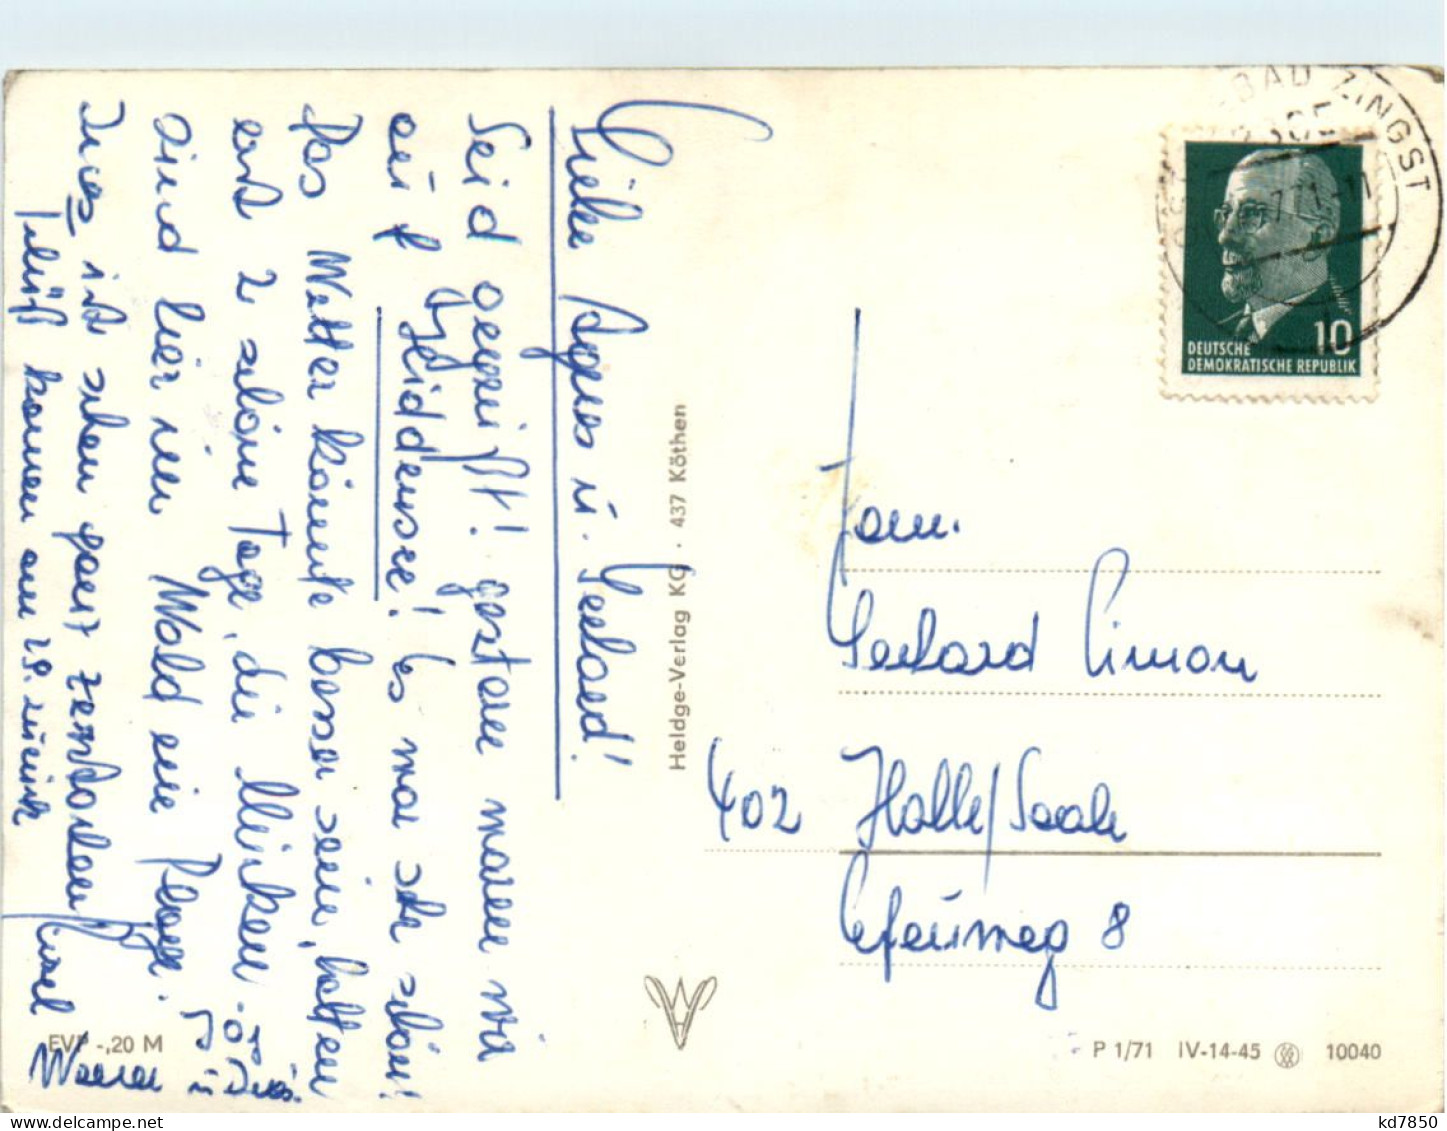 Liebe Agnes u. Gerhard!
Seid gegrüßt! Gestern waren wir
auf Hiddensee! Es war sehr schön!
Das Wetter könnte besser sein, hatten
erst 2 schöne Tage, die Mücken
sind hier im Wald eine Plage.
Ines ist schon ganz zerstochen
Tschüß kommen am 29. zurück
Werner
u. Ines.
BAD ZINGST
10
DEUTSCHE
DEMOKRATISCHE REPUBLIK
Fam.
Gerhard Simon
402 Halle/Saale
8
Heldge-Verlag KG · 437 Köthen
EVP -,20 M
P 1/71 IV-14-45 10040
kd7850